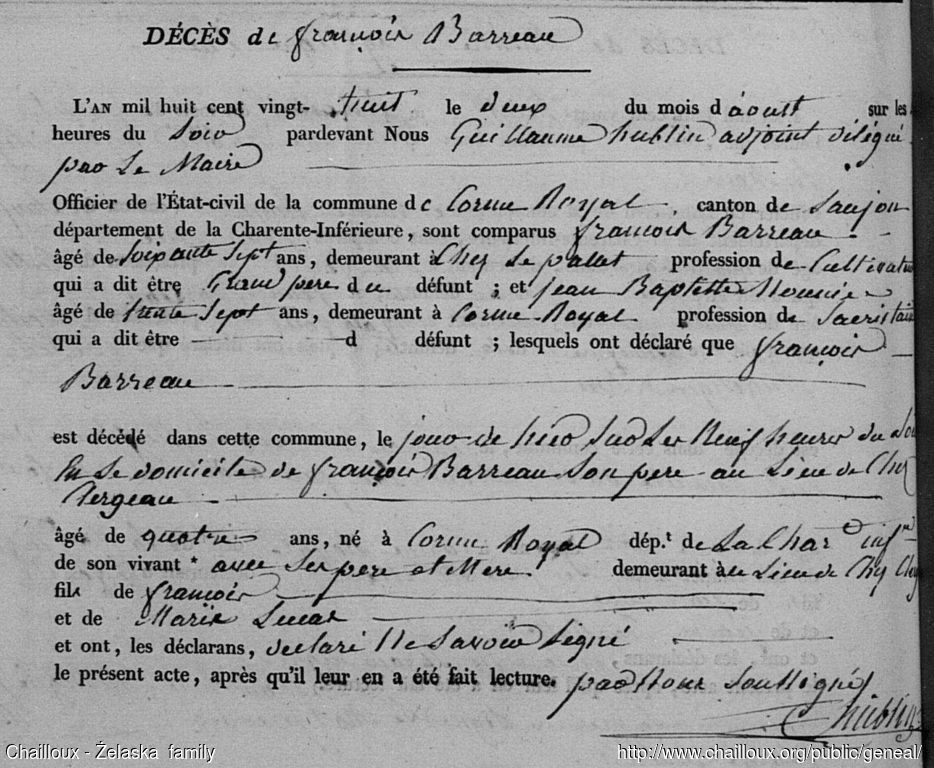 DÉCÈS de françois Barreau
L'AN mil huit cent vingt- huit le deux du mois d'aoust sur les
heures du Soir pardevant Nous Guillaume hublin adjoint délégué
par Le Maire
Officier de l'État-civil de la commune de Corme Royal, canton de Saujon
département de la Charente-Inférieure, sont comparus francois Barreau
âgé de Soixante Sept ans, demeurant à Chez Le pallet profession de Cultivateur
qui a dit être Grand pere du défunt ; et jean Baptiste Mounier
âgé de trente Sept ans, demeurant à Corme Royal profession de Sacristain
qui a dit être d défunt ; lesquels ont déclaré que françois
Barreau
est décédé dans cette commune, le jour de hier Sur Les Neuf heures du Soir
En Le domicile de françois Barreau Son pere au Lieu de Chez
Clergeau
âgé de quatre ans, né à Corme Royal dép.t de La Char inf
de son vivant * avec Ses pere et Mere demeurant à Lieu de Chez
fils de francois
et de Marie
et ont, les déclarans, declaré Ne Savoir Signé
le présent acte, après qu'il leur en a été fait lecture. par Nous Soussigné
hublin
Chailloux - Żelaska family
http://www.chailloux.org/public/geneal/